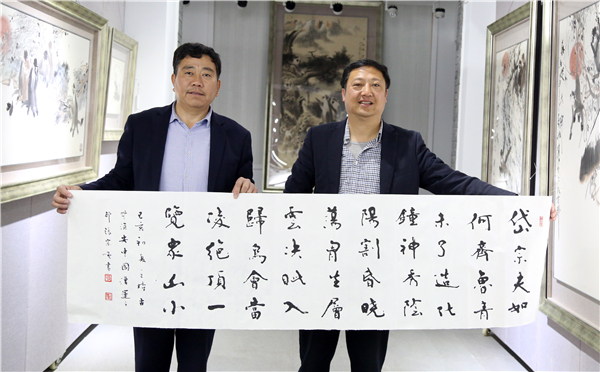 岱宗夫如
何齊魯青
未了造化
鐘神秀陰
陽割昏曉
蕩胷生層
雲决眦入
歸鳥會當
凌絶頂一
覽衆山小
己亥初夏之時